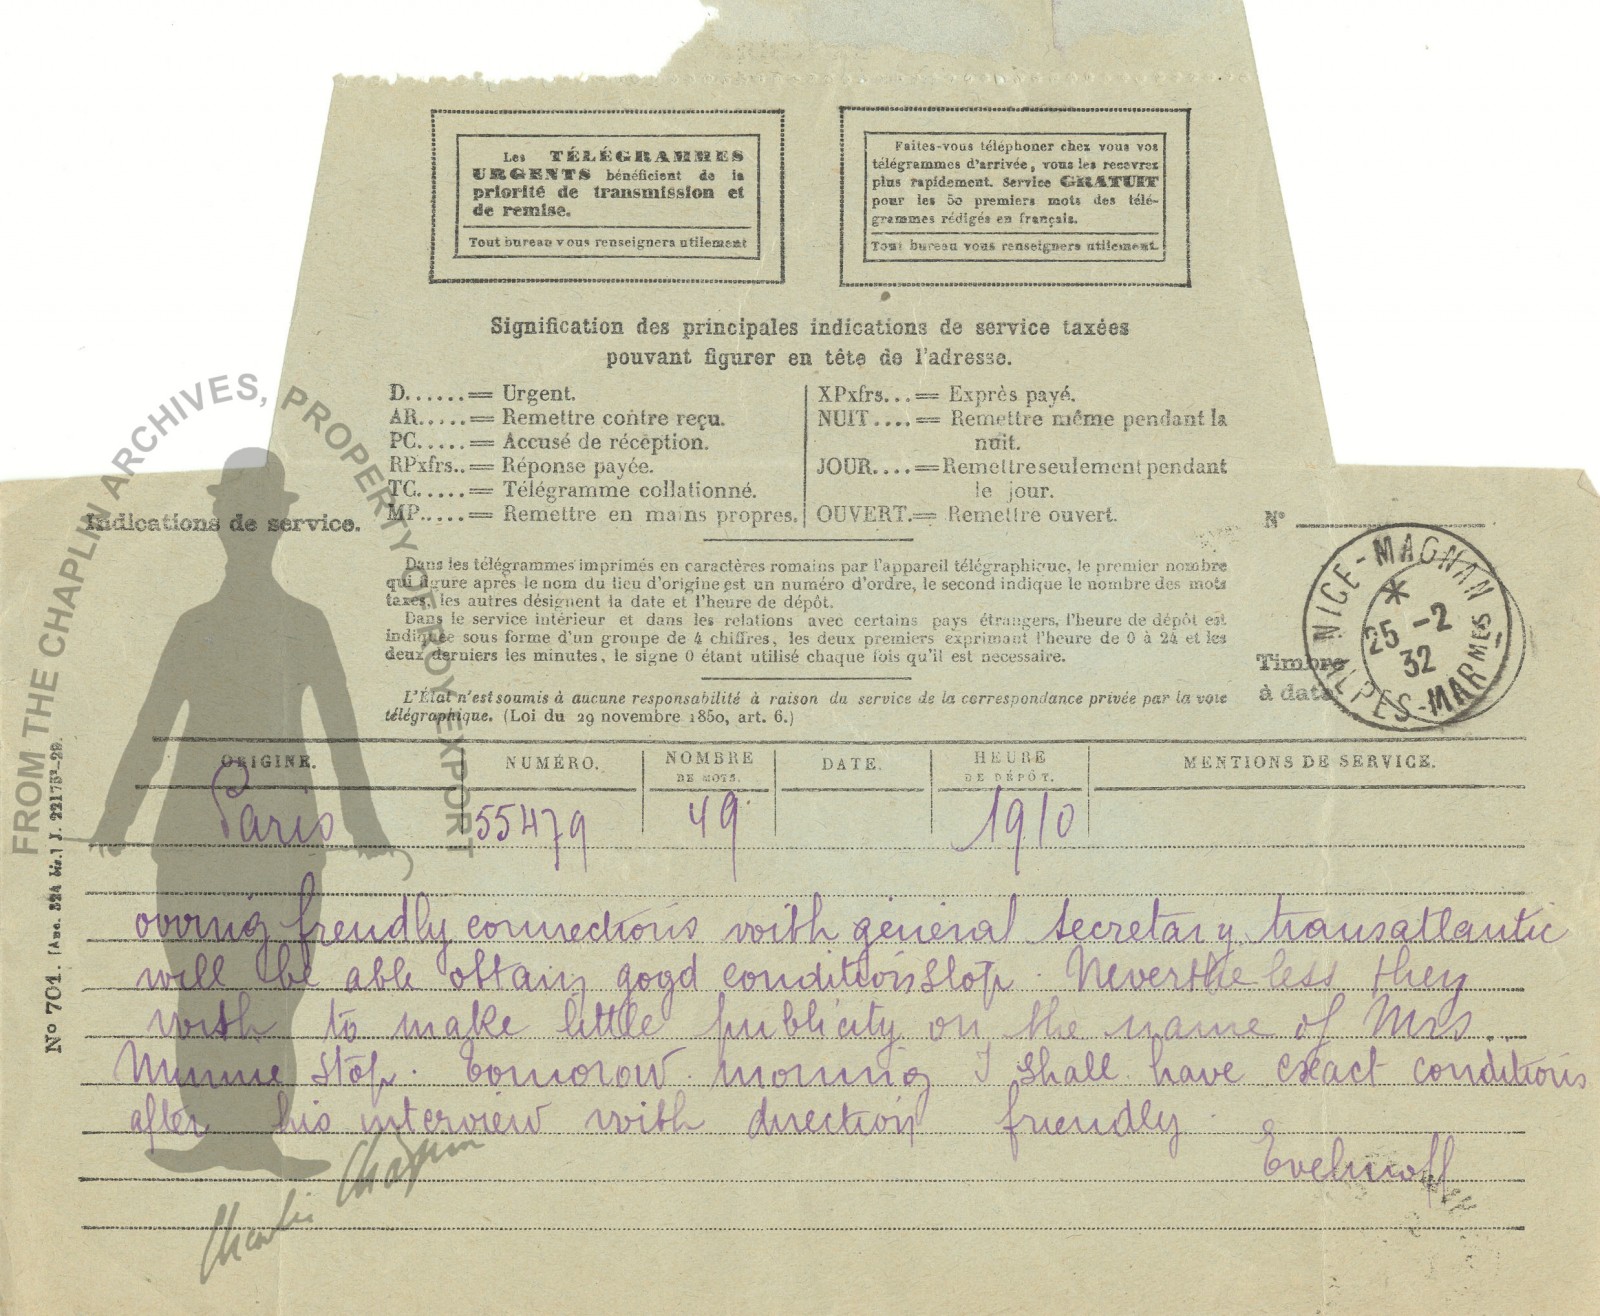 Les TÉLÉGRAMMES
URGENTS bénéficient de la
priorité de transmission et
de remise.
Tout bureau vous renseignera utilement
Faites-vous téléphoner chez vous vos
télégrammes d'arrivée, vous les recevrez
plus rapidement. Service GRATUIT
pour les 50 premiers mots des télé-
grammes rédigés en français.
Tout bureau vous renseignera utilement.
Signification des principales indications de service taxées
pouvant figurer en tête de l'adresse.
D......= Urgent.
AR.....= Remettre contre reçu.
PC.....= Accusé de réception.
RPxfrs..= Réponse payée.
TC.....= Télégramme collationné.
MP.....= Remettre en mains propres.
XPxfrs...= Exprès payé.
NUIT....= Remettre même pendant la
nuit.
JOUR....= Remettre seulement pendant
le jour.
OUVERT.= Remettre ouvert.
Indications de service.
N°
Dans les télégrammes imprimés en caractères romains par l'appareil télégraphique, le premier nombre
qui figure après le nom du lieu d'origine est un numéro d'ordre, le second indique le nombre des mots
taxés, les autres désignent la date et l'heure de dépôt.
Dans le service intérieur et dans les relations avec certains pays étrangers, l'heure de dépôt est
indiquée sous forme d'un groupe de 4 chiffres, les deux premiers exprimant l'heure de 0 à 24 et les
deux derniers les minutes, le signe 0 étant utilisé chaque fois qu'il est necessaire.
L'État n'est soumis à aucune responsabilité à raison du service de la correspondance privée par la voie
télégraphique. (Loi du 29 novembre 1850, art. 6.)
Timbre
à date
NICE-MAGNAN
*
25 -2
32
ALPES-MARMES
ORIGINE. NUMÉRO. NOMBRE DE MOTS. DATE. HEURE DE DÉPÔT. MENTIONS DE SERVICE.
Paris 55479 49 1910
owing frendly connections with général secretary transatlantic
will be able obtain good conditions stop. Nevertheless they
wish to make little publicity on the name of Mrs
Minnie stop. Tomorow morning I shall have exact conditions
after his interview with direction friendly.
Evelinoff
N° 701. [Anc. 324 bis.] J. 22175²-29.
FROM THE CHAPLIN ARCHIVES, PROPERTY OF ROY EXPORT
Charlie Chaplin